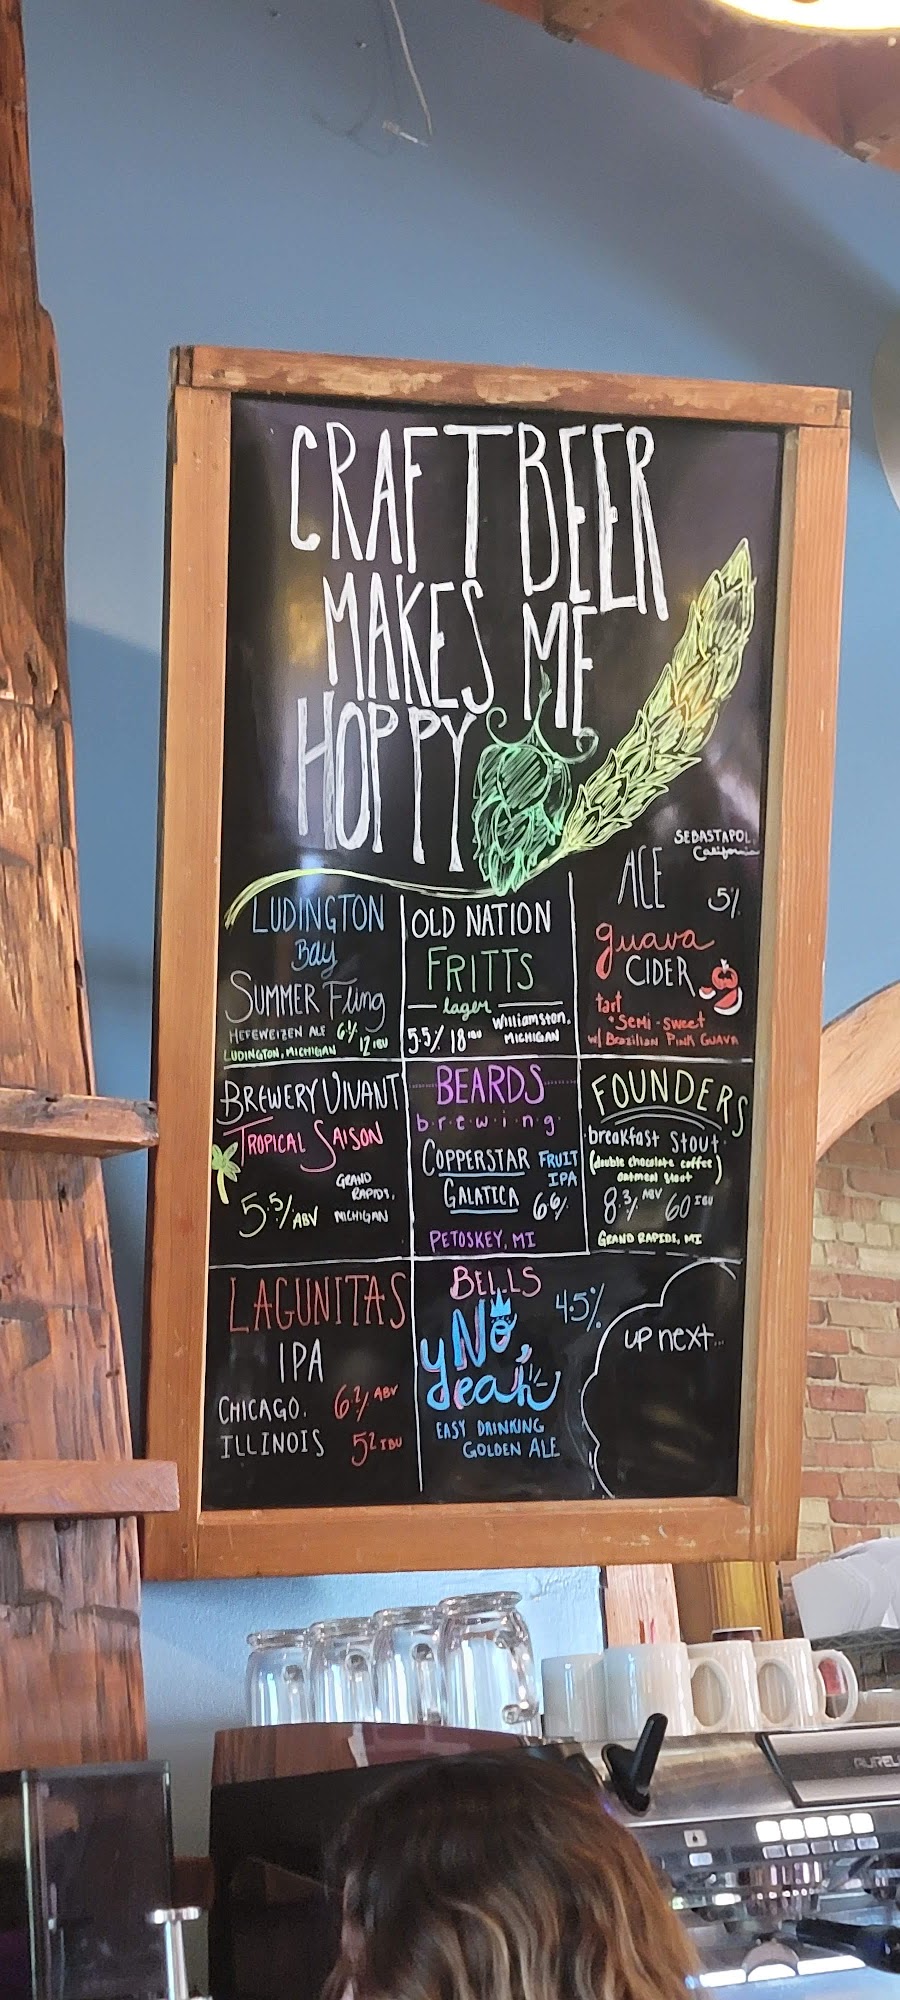 CRAFT BEER
MAKES ME
HOPPY
LUDINGTON
Bay
SUMMER Fling
HEFEWEIZEN ALE 6% 12 IBU
LUDINGTON, MICHIGAN
OLD NATION
FRITTS
lager
5.5% 18 IBU
Williamston,
MICHIGAN
SEBASTAPOL,
California
ACE
5%
guava
CIDER
tart
• SEMI-SWEET
w/ Brazilian PINK GUAVA
BREWERY VIVANT
TROPICAL SAISON
5.5% ABV
GRAND
RAPIDS,
MICHIGAN
BEARDS
b·r·e·w·i·n·g·
COPPERSTAR
GALATICA
FRUIT
IPA
6.6%
PETOSKEY, MI
FOUNDERS
breakfast stout
(double chocolate coffee
oatmeal stout)
8.3% ABV 60 IBU
GRAND RAPIDS, MI
LAGUNITAS
IPA
CHICAGO,
ILLINOIS
6.2% ABV
52 IBU
BELLS
yNo,
yeah
4.5%
EASY DRINKING
GOLDEN ALE
up next...